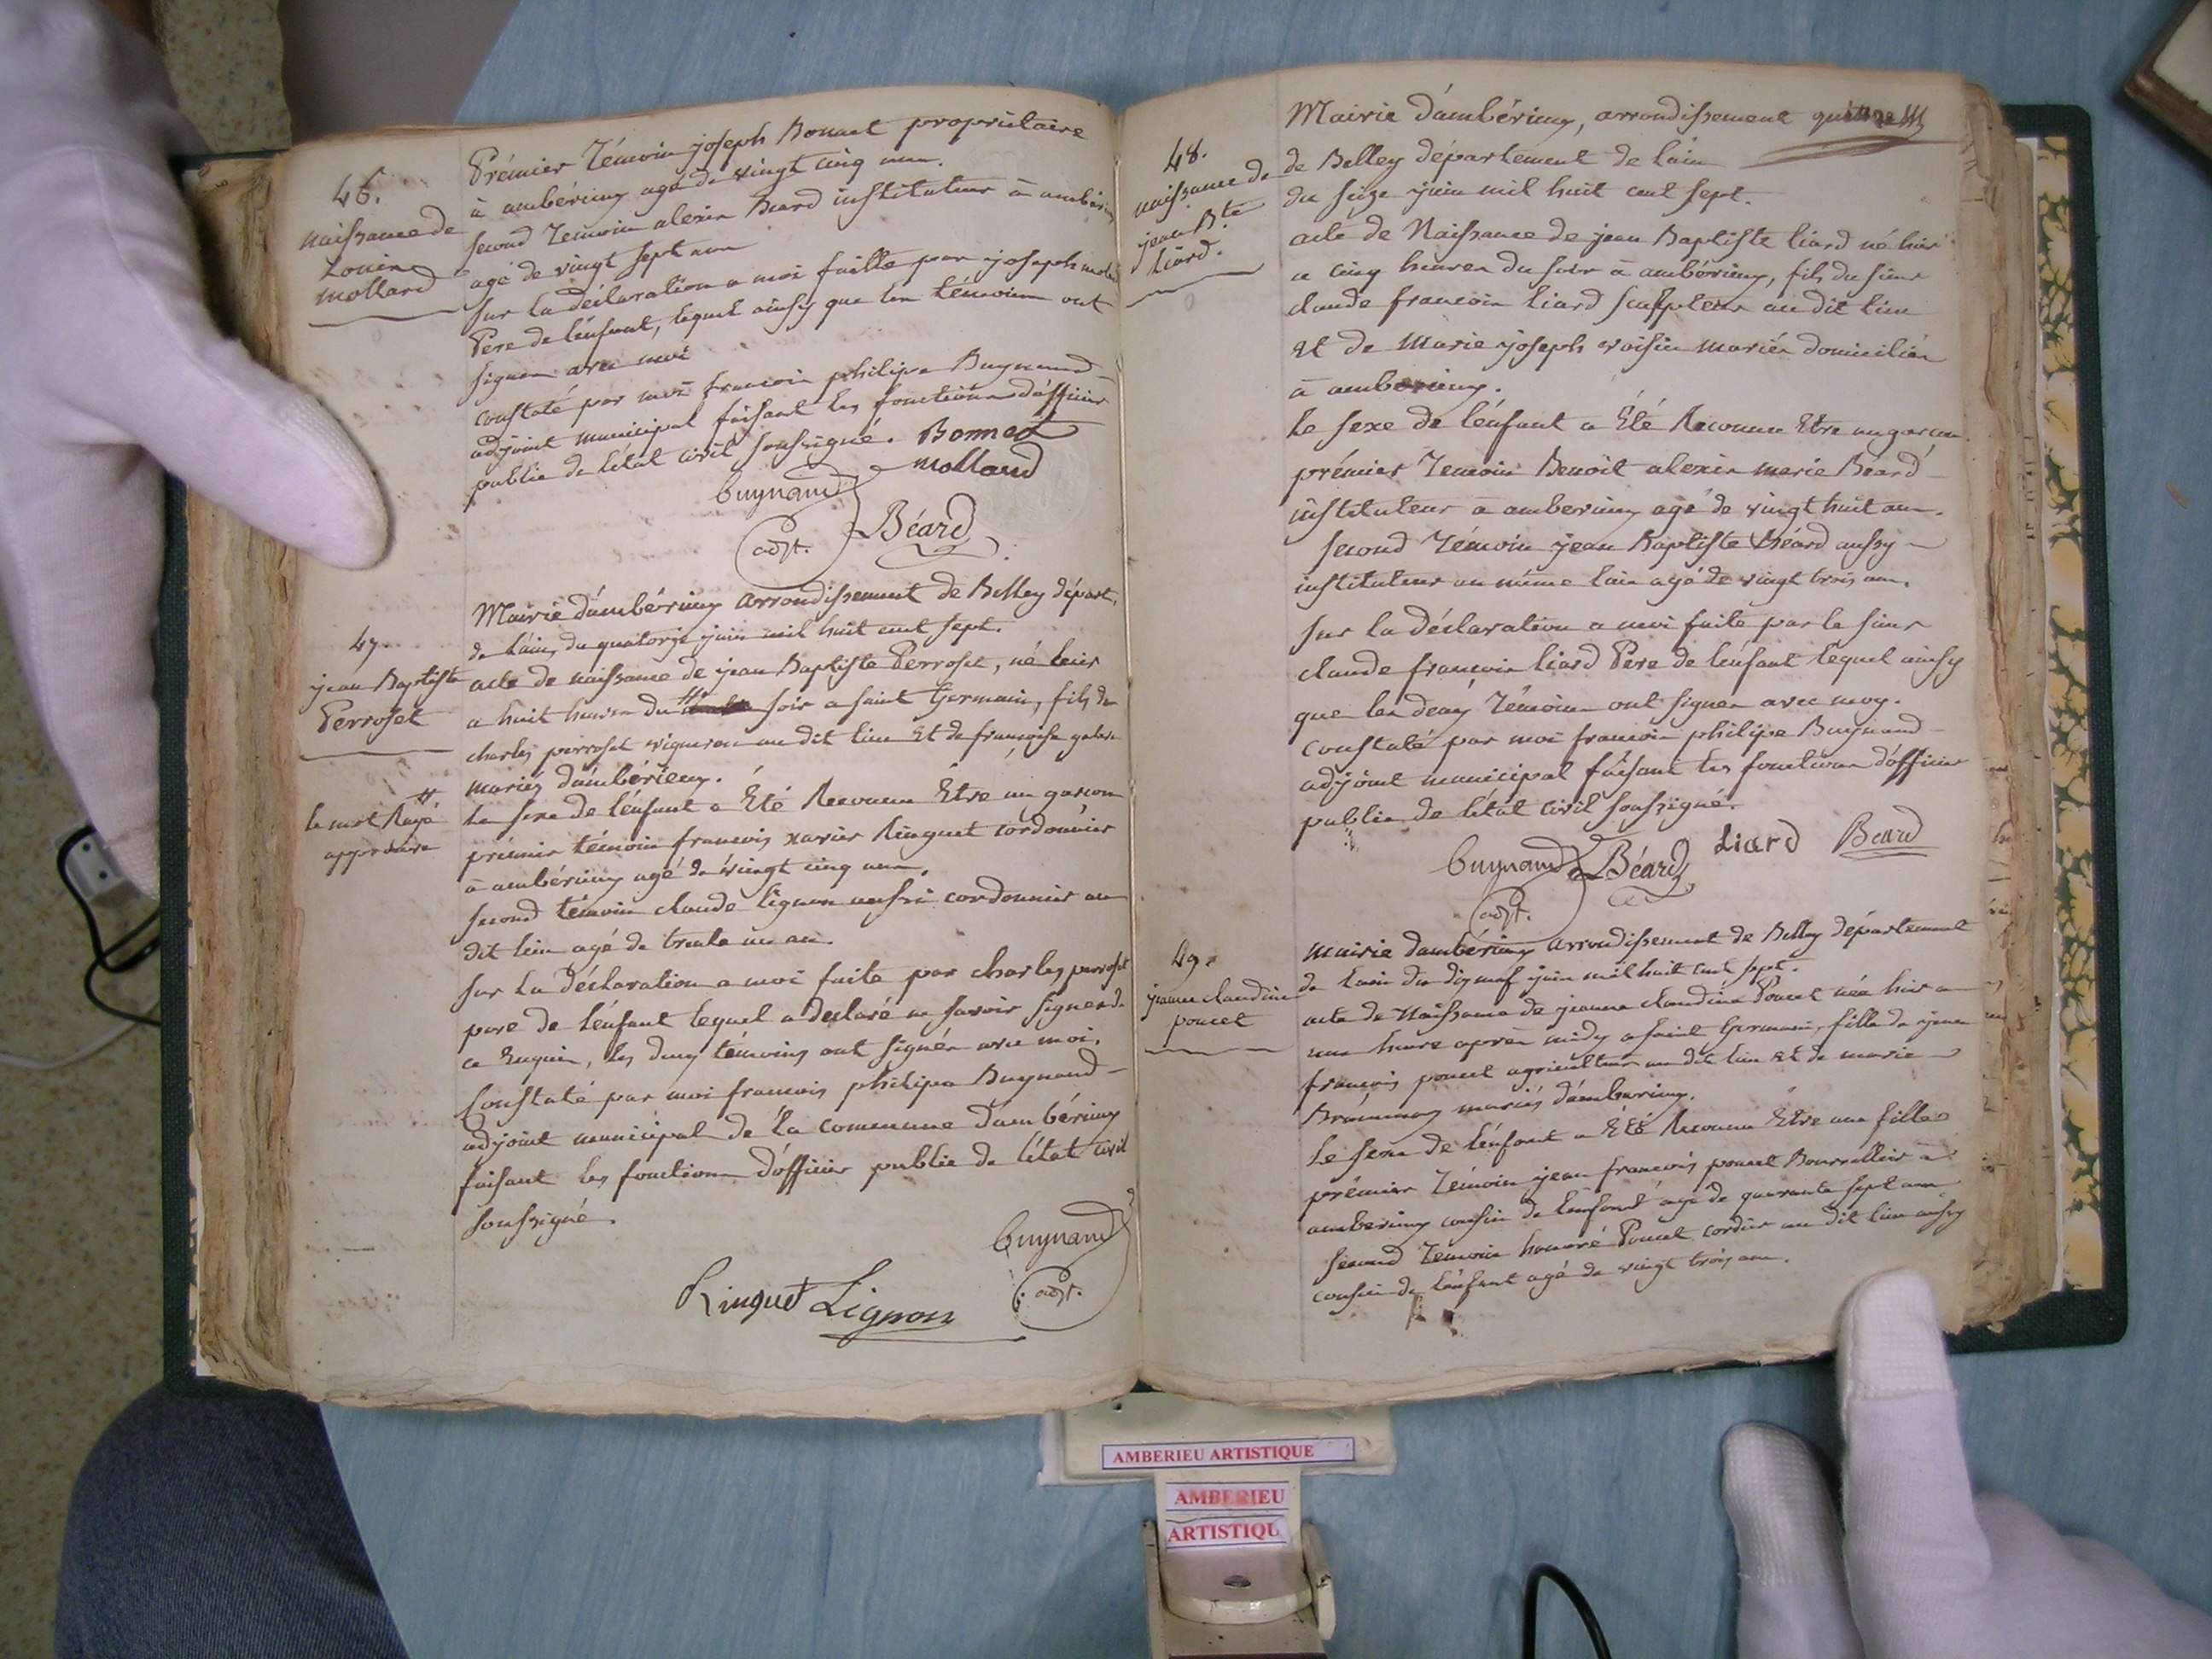 46.
naissance de
Louis
mollard
Prémier Témoin joseph Bonnet propriétaire
à ambérieux agé de vingt cinq ans.
second Temoin alexis Beard instituteur à ambérieux
agé de vingt sept ans
sur la déclaration a moi faitte par joseph mollard
Pere de l'énfant, lequel ainsy que les témoins ont
signer avec moi
constaté par moi francois philipe Buynand
adjoint municipal faisant les fonctions d'officier
public de l'état civil soussigné. Bonnet
mollard
buynand
adjt. Béard
47
jean Baptiste
Perroset
Mairie d'ambérieux arrondissement de Belley départ.
de l'ain, du quatorze juin mil huit cent sept.
acte de naissance de jean Baptiste Perroset, né hier
a huit heures du soir a saint Germain, fils de
charles perroset vigneron au dit lieu Et de francoise
mariés d'ambérieux.
le mot Rayé
approuvé
Le sexe de l'énfant a Eté Reconnu Être un garcon
prémier témoin francois xavier Ringuet cordonnier
à ambérieux agé de vingt cinq ans.
second témoin claude lignon aussi cordonnier au
dit lieu agé de trente un an.
sur la déclaration a moi faite par charles perroset
pere de l'énfant lequel a declaré ne savoir signer de
ce Enquis, les deux témoins ont signés avec moi.
Constaté par moi francois philipe Buynand
adjoint municipal de la commune d'ambérieux
faisant les fonctions d'officier public de l'état civil
soussigné.
buynand
adjt.
Ringuet Lignon
48.
naissance de
jean Bte
liard.
Mairie d'ambérieux, arrondissement
de Belley département de l'ain
du seize juin mil huit cent sept.
acte de Naissance de jean Baptiste liard né hier
a cinq heures du soir à ambérieux, fils du sieur
claude francois liard sculpteur au dit lieu
et de Marie joseph voisin mariés domiciliés
à amberieux.
Le sexe de l'énfant a Eté Reconnu Etre un garcon.
prémier Temoin Benoit alexis marie Béard
instituteur à amberieux agé de vingt huit ans.
second Témoin jean Baptiste Béard aussy
instituteur au même lieu agé de vingt trois ans.
sur la déclaration a moi faite par le sieur
claude francois liard Pere de l'énfant lequel ainsy
que les deux Témoins ont signer avec moy.
Constaté par moi francois philipe Buynand
adjoint municipal faisant les fonctions d'officier
public de l'état civil soussigné.
buynand Béard liard Beard
adjt.
49.
jeanne claudine
poncet
Mairie d'ambérieux arrondissement de Belley département
de l'ain du dix neuf juin mil huit cent sept.
acte de Naissance de jeanne claudine Poncet née hier a
une heure après midy a saint Germain, fille de jean
francois poncet agriculteur au dit lieu Et de marie
mariés d'amberieux.
Le sexe de l'énfant a Eté Reconnu Etre une fille
prémier Témoin jean francois poncet Bourrellier à
amberieux cousin de l'enfant agé de quarante sept ans
second Temoin honoré Poncet cordier au dit lieu aussy
cousin de l'énfant agé de vingt trois ans.
AMBERIEU ARTISTIQUE
AMBERIEU
ARTISTIQU